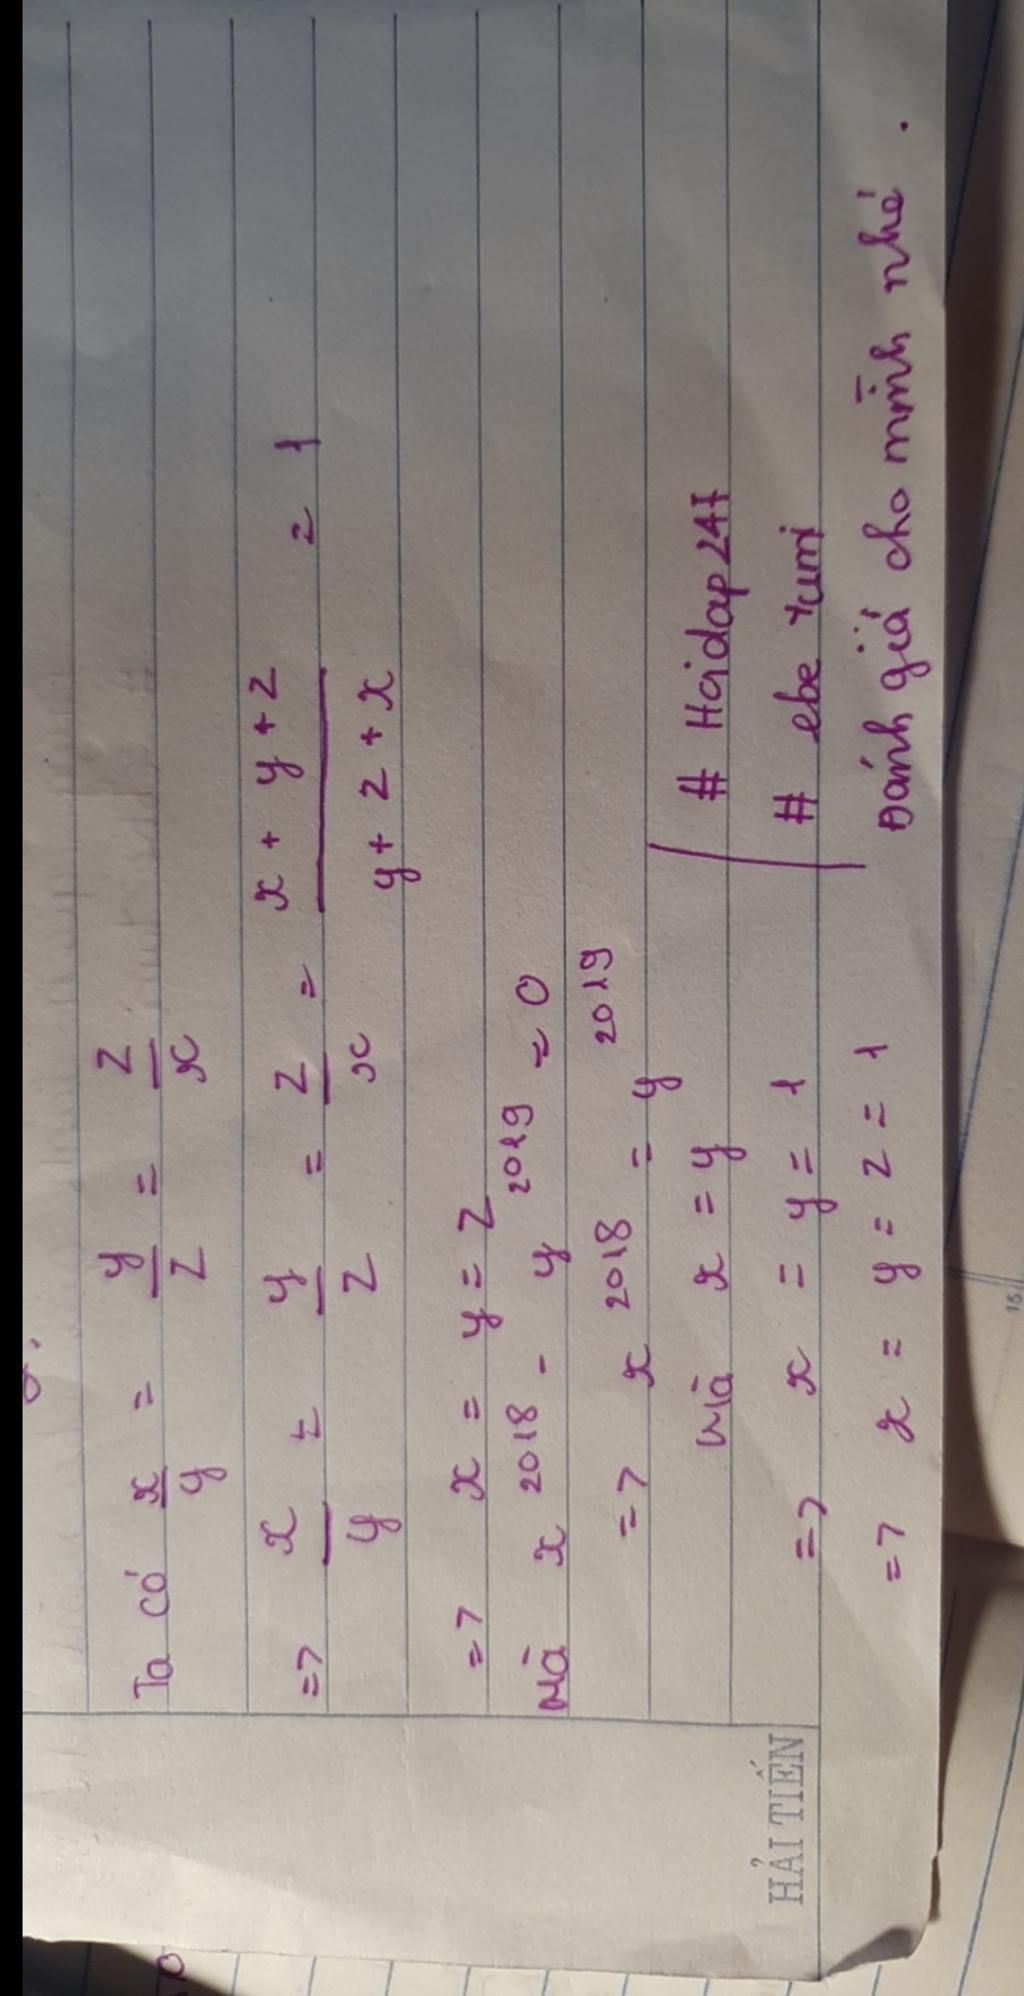 Ta có x/y = y/z = z/x
=> x/y = y/z = z/x = x + y + z / y + z + x = 1
=> x = y = z
Mà x^2018 - y^2019 = 0
=> x^2018 = y^2019
Mà x = y
=> x = y = 1
=> x = y = z = 1
# Hoidap247
# ebe rumi
Đánh giá cho mình nhé.
HẢI TIẾN
15